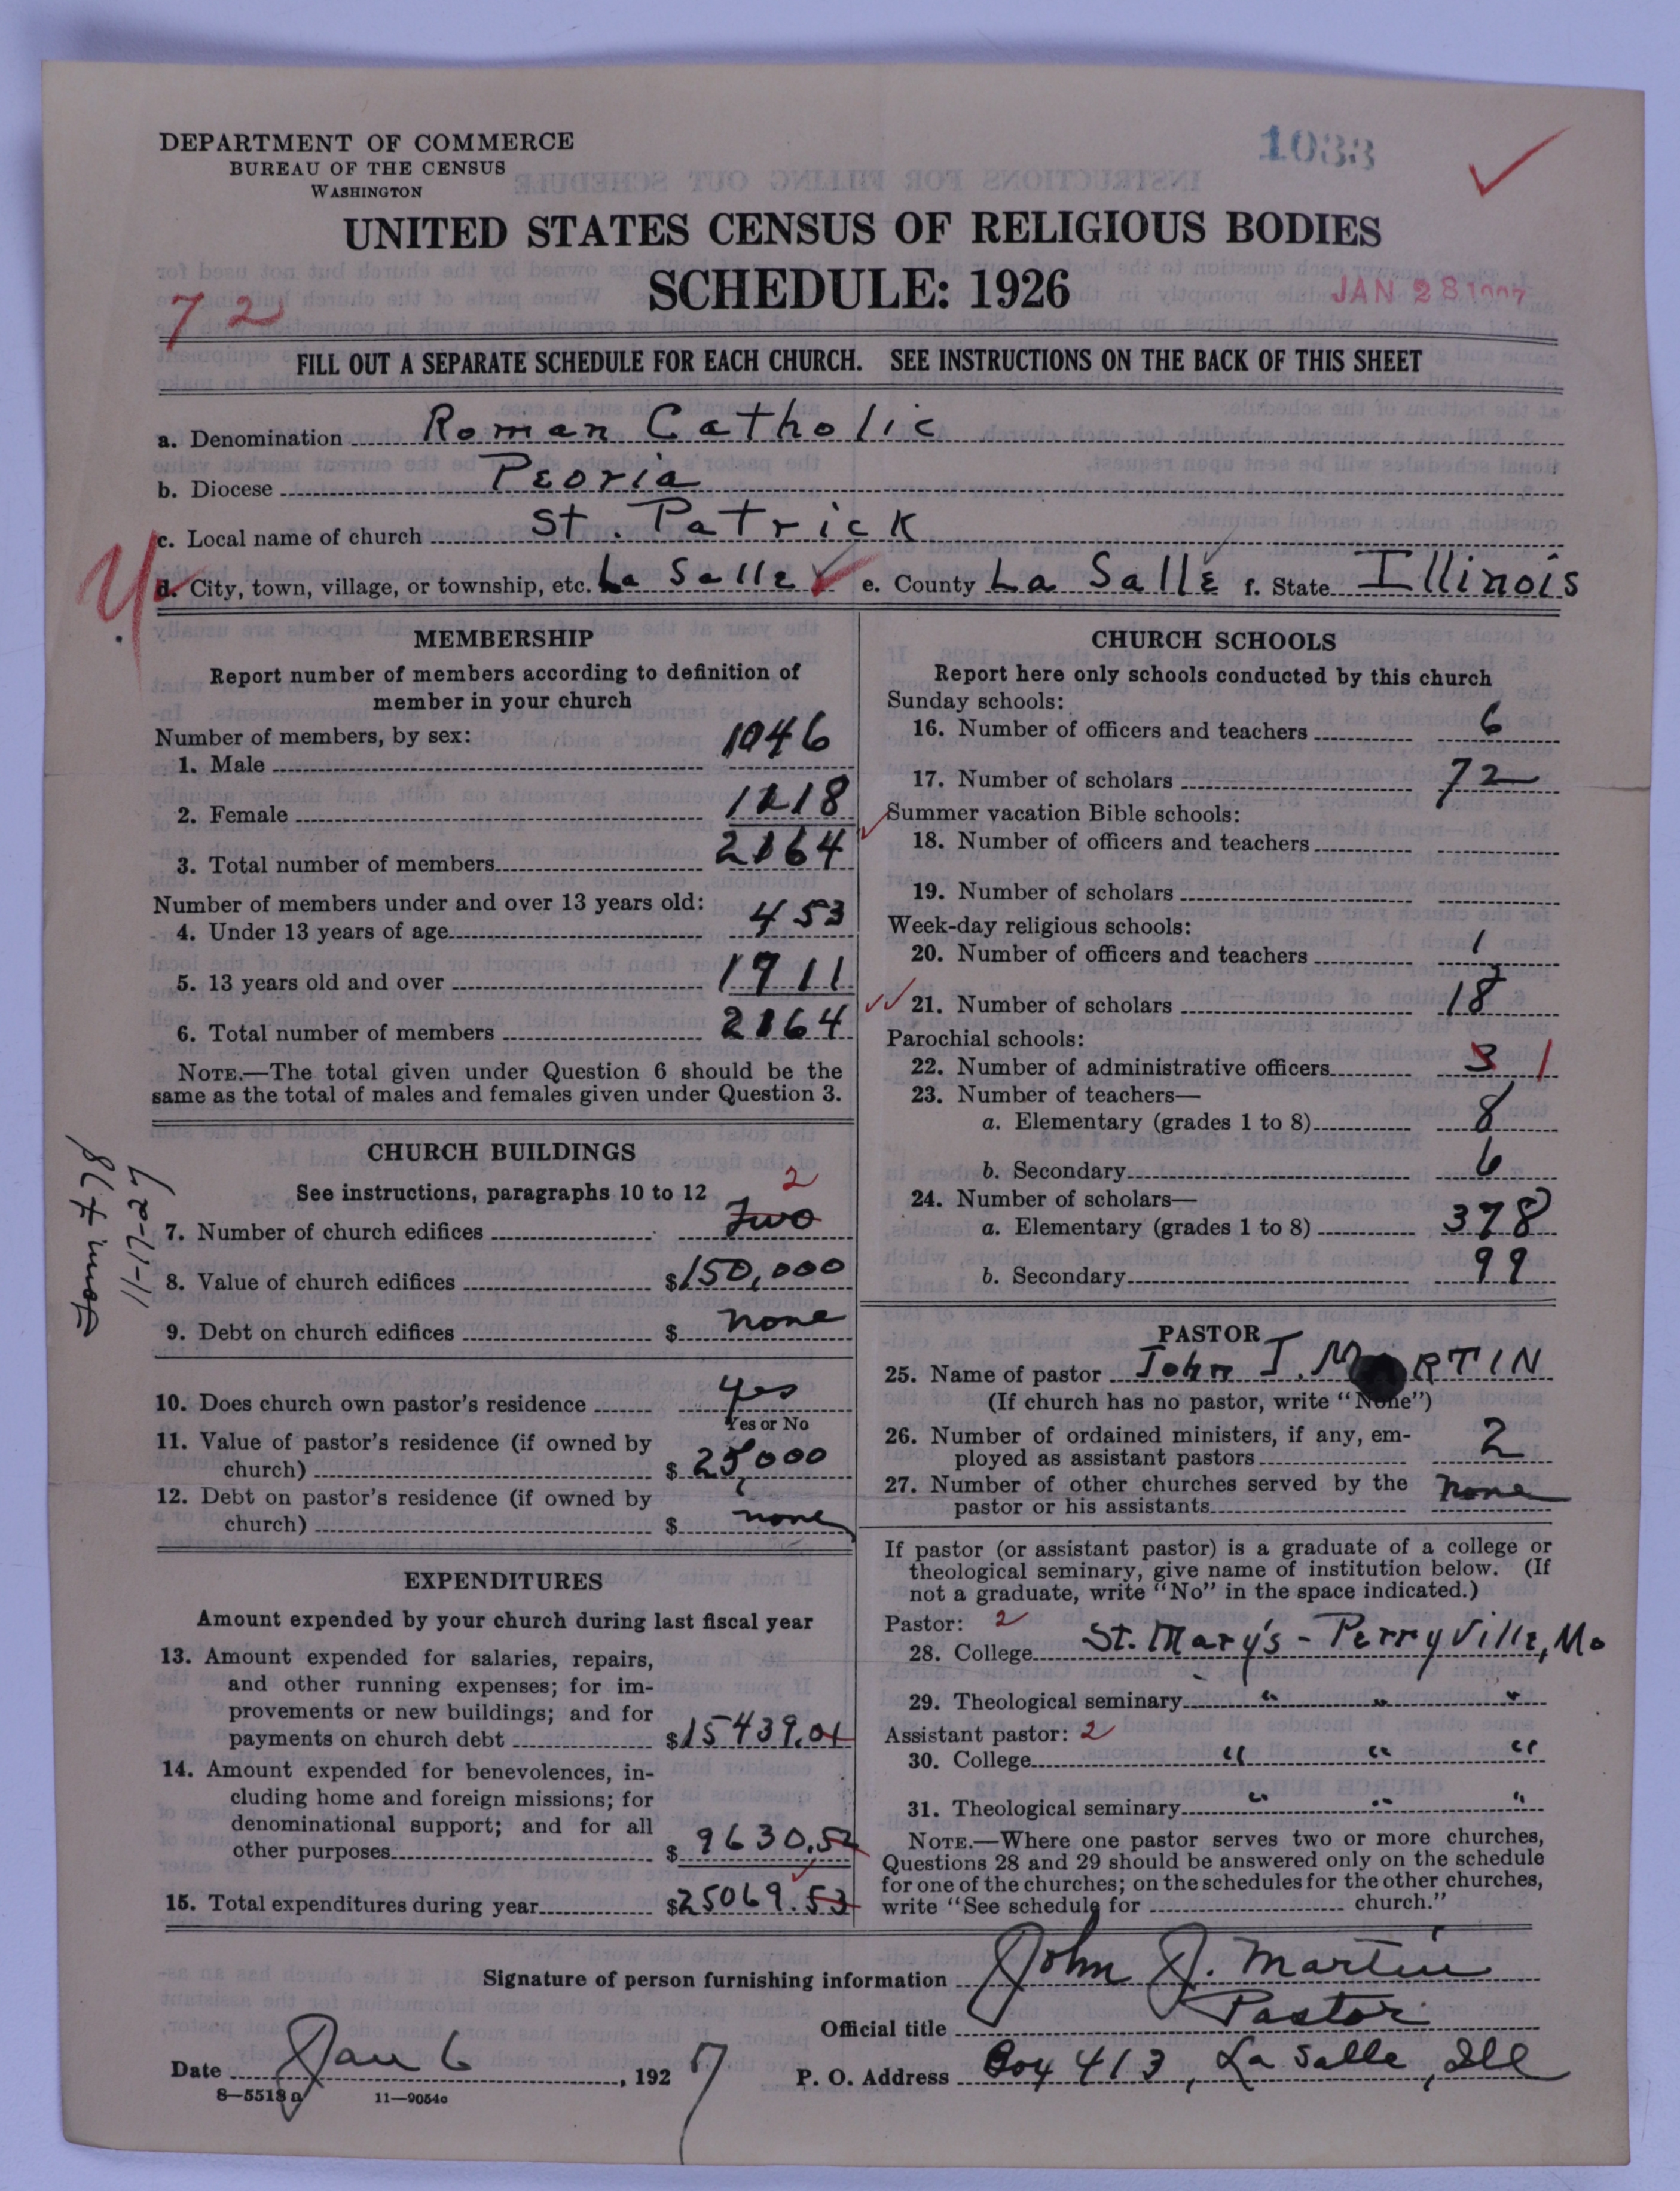 DEPARTMENT OF COMMERCE
BUREAU OF THE CENSUS
WASHINGTON
1033
UNITED STATES CENSUS OF RELIGIOUS BODIES
SCHEDULE: 1926
72
JAN 28 1927
FILL OUT A SEPARATE SCHEDULE FOR EACH CHURCH. SEE INSTRUCTIONS ON THE BACK OF THIS SHEET
a. Denomination Roman Catholic
b. Diocese Peoria
c. Local name of church St. Patrick
d. City, town, village, or township, etc. La Salle e. County La Salle f. State Illinois
MEMBERSHIP
Report number of members according to definition of
member in your church
Number of members, by sex:
1. Male 1046
2. Female 1218
3. Total number of members 2164
Number of members under and over 13 years old:
4. Under 13 years of age 453
5. 13 years old and over 1711
6. Total number of members 2164
NOTE.—The total given under Question 6 should be the
same as the total of males and females given under Question 3.
CHURCH BUILDINGS
See instructions, paragraphs 10 to 12 2
7. Number of church edifices Two
8. Value of church edifices $150,000
9. Debt on church edifices $ none
10. Does church own pastor's residence yes
Yes or No
11. Value of pastor's residence (if owned by
church) $ 25,000
12. Debt on pastor's residence (if owned by
church) $ none
EXPENDITURES
Amount expended by your church during last fiscal year
13. Amount expended for salaries, repairs,
and other running expenses; for im-
provements or new buildings; and for
payments on church debt $15439.01
14. Amount expended for benevolences, in-
cluding home and foreign missions; for
denominational support; and for all
other purposes $ 9630.52
15. Total expenditures during year $25069.53
11-17-27
CHURCH SCHOOLS
Report here only schools conducted by this church
Sunday schools:
16. Number of officers and teachers 6
17. Number of scholars 72
Summer vacation Bible schools:
18. Number of officers and teachers
19. Number of scholars
Week-day religious schools:
20. Number of officers and teachers 1
21. Number of scholars 18
Parochial schools:
22. Number of administrative officers 3 1
23. Number of teachers—
a. Elementary (grades 1 to 8) 8
b. Secondary 6
24. Number of scholars—
a. Elementary (grades 1 to 8) 378
b. Secondary 99
PASTOR
25. Name of pastor John J. MARTIN
(If church has no pastor, write "None")
26. Number of ordained ministers, if any, em-
ployed as assistant pastors 2
27. Number of other churches served by the
pastor or his assistants none
If pastor (or assistant pastor) is a graduate of a college or
theological seminary, give name of institution below. (If
not a graduate, write "No" in the space indicated.)
Pastor: 2
28. College St. Mary's - Perryville, Mo
29. Theological seminary " " "
Assistant pastor: 2
30. College " " "
31. Theological seminary " " "
NOTE.—Where one pastor serves two or more churches,
Questions 28 and 29 should be answered only on the schedule
for one of the churches; on the schedules for the other churches,
write "See schedule for church."
Signature of person furnishing information John J. Martin
Official title Pastor
Date Jan 6, 1927 P. O. Address Box 413, La Salle, Ill
8—5518a 11—9054c